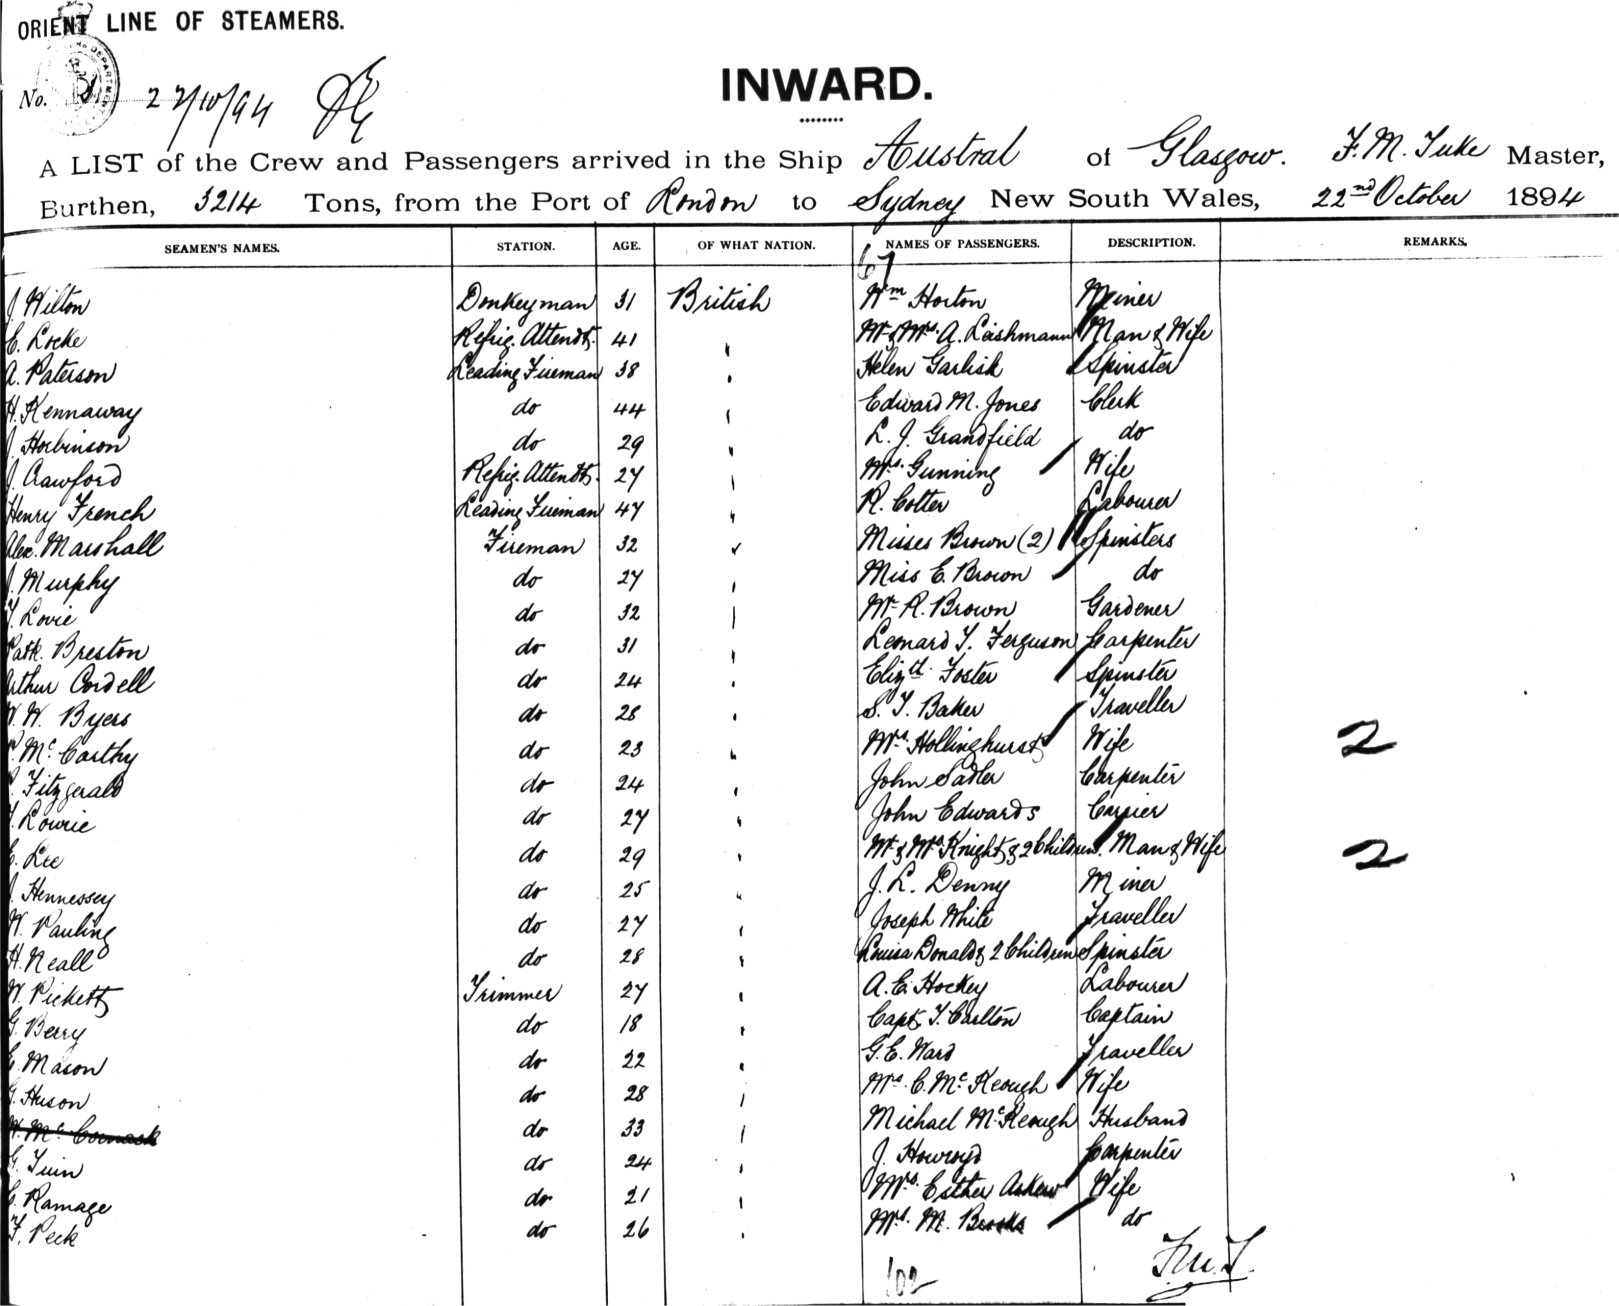 ORIENT LINE OF STEAMERS.
No. 22/10/94
INWARD.
A LIST of the Crew and Passengers arrived in the Ship Austral of Glasgow. F. M. Tuke Master,
Burthen, 3214 Tons, from the Port of London to Sydney New South Wales, 22nd October 1894
SEAMEN'S NAMES. STATION. AGE. OF WHAT NATION. NAMES OF PASSENGERS. DESCRIPTION. REMARKS.
67
J. Wilton Donkeyman 31 British Wm Horton Miner
C. Locke Refrig. Attendt. 41 " Mr & Mrs A. Leishmann Man & Wife
A. Paterson Leading Fireman 38 " Helen Garlish Spinster
H. Kennaway do 44 " Edward M. Jones Clerk
J. Horbinson do 29 " L. J. Grandfield do
J. Crawford Refrig. Attendt. 27 " Mrs. Gunning Wife
Henry French Leading Fireman 47 " R. Cotter Labourer
Alex. Marshall Fireman 32 " Misses Brown (2) Spinsters
J. Murphy do 27 " Miss E. Brown do
T. Lovie do 32 " Mr R. Brown Gardener
Patk. Breston do 31 " Leonard T. Ferguson Carpenter
Arthur Cordell do 24 " Elizth. Foster Spinster
W. W. Byers do 28 " S. T. Baker Traveller
P. McCarthy do 23 " Mrs. Hollinghurst Wife 2
P. Fitzgerald do 24 " John Sadler Carpenter
T. Lowrie do 27 " John Edwards Carrier
E. Lee do 29 " Mr & Mrs Knight & 2 Children. Man & Wife 2
J. Hennessey do 25 " J. L. Denny Miner
W. Pauling do 27 " Joseph White Traveller
H. Neall do 28 " Louisa Donald & 2 Children Spinster
W. Pickett Trimmer 27 " A. E. Hockey Labourer
G. Berry do 18 " Capt. T. Carlton Captain
E. Mason do 22 " G. E. Ward Traveller
G. Huson do 28 " Mrs. C. McKeough Wife
W. McCormack do 33 " Michael McKeough Husband
G. Tuin do 24 " J. Howroyd Carpenter
C. Ramage do 21 " Mrs. Esther Askew Wife
F. Peck do 26 " Mrs. M. Brooks do
102 F.M.T.